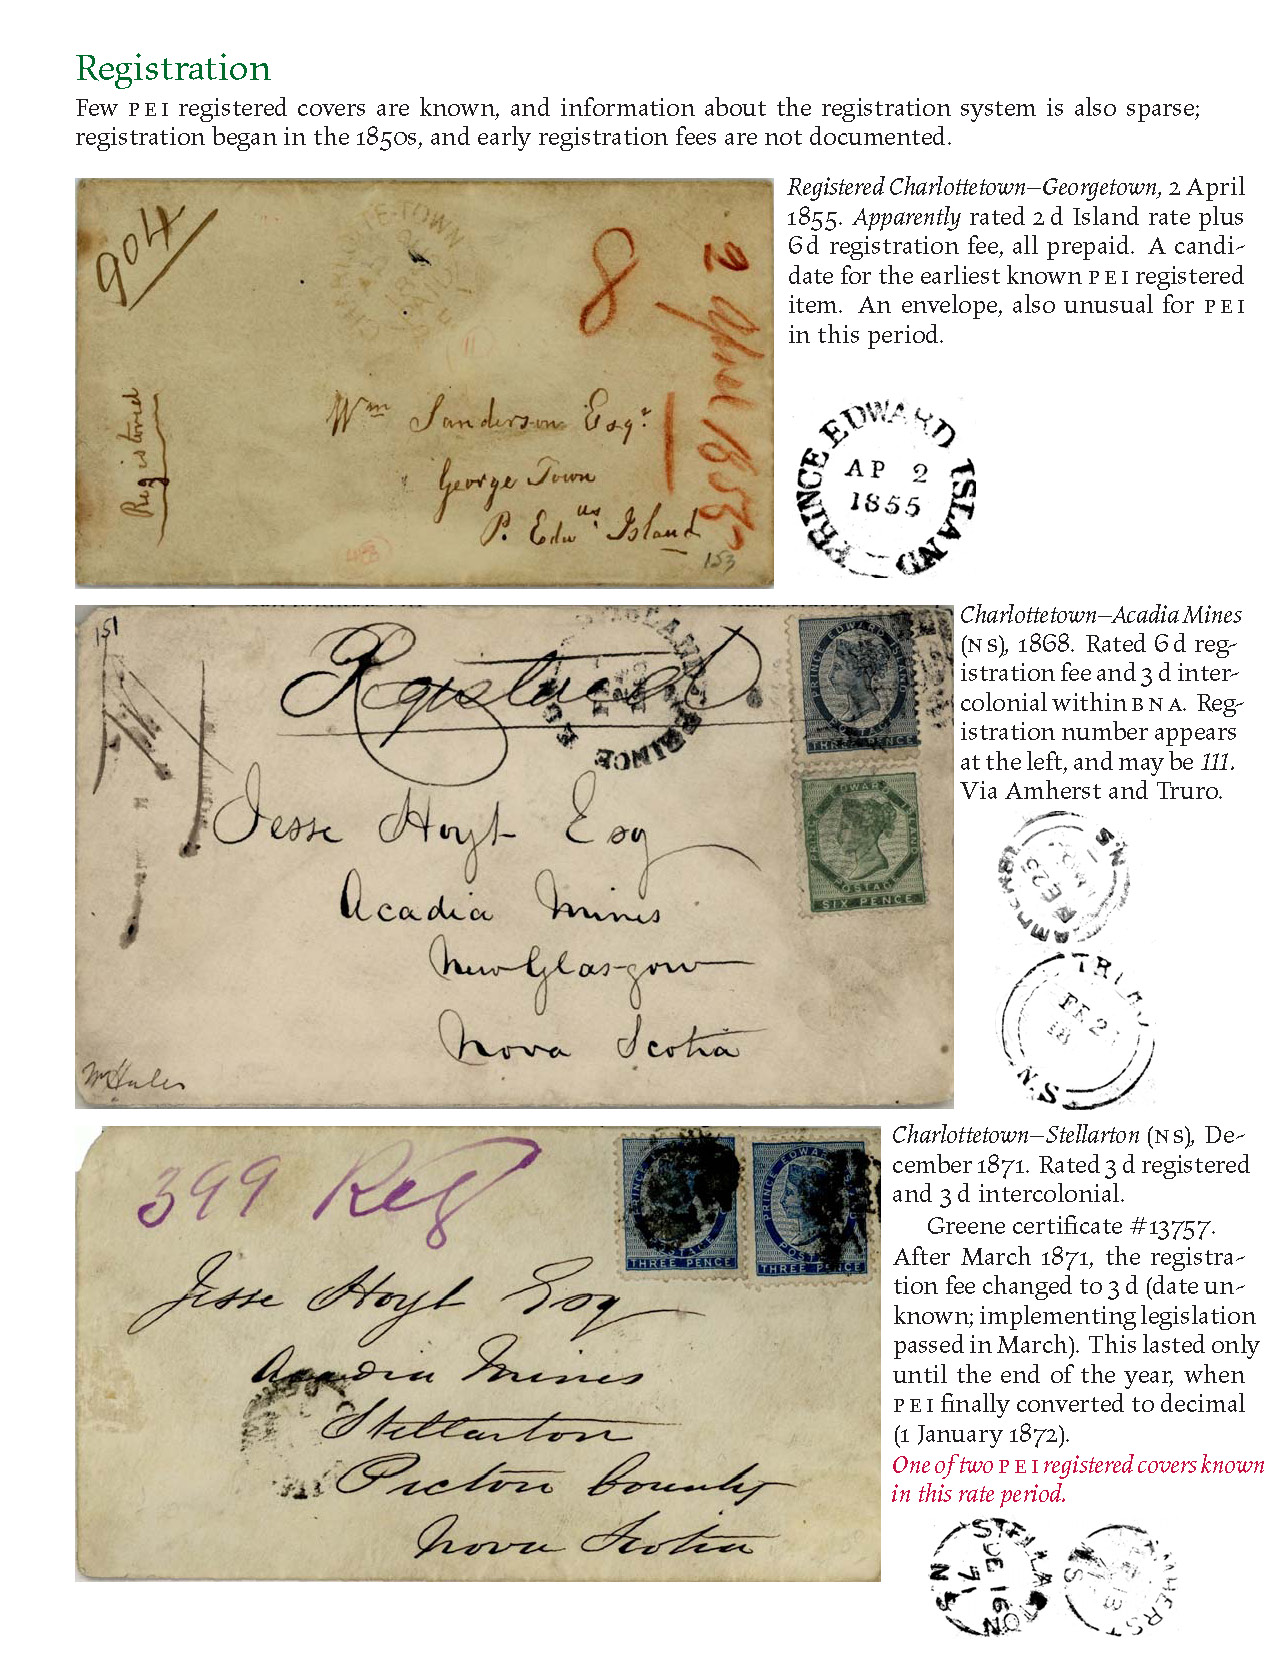 Registration
Few PEI registered covers are known, and information about the registration system is also sparse;
registration began in the 1850s, and early registration fees are not documented.
904
8
2 April 1855
Registered
Wm Sanderson Esqr
George Town
P. Edws Island
153
Registered Charlottetown–Georgetown, 2 April
1855. Apparently rated 2 d Island rate plus
6 d registration fee, all prepaid. A candi-
date for the earliest known PEI registered
item. An envelope, also unusual for PEI
in this period.
PRINCE EDWARD ISLAND
AP 2
1855
151
Registered
PRINCE
PRINCE EDWARD ISLAND
POSTAGE
THREE PENCE
EDWARD
POSTAGE
SIX PENCE
Jesse Hoyt Esq
Acadia Mines
New Glasgow
Nova Scotia
Charlottetown–Acadia Mines
(NS), 1868. Rated 6 d reg-
istration fee and 3 d inter-
colonial within BNA. Reg-
istration number appears
at the left, and may be 111.
Via Amherst and Truro.
N.S
FE 25
TRU
FE 2
18
N.S
399 Reg
PRINCE
POSTAGE
THREE PENCE
PRINCE EDWARD
THREE PENCE
Jesse Hoyt Esq
Acadia Mines
Stellarton
Pictou County
Nova Scotia
Charlottetown–Stellarton (NS), De-
cember 1871. Rated 3 d registered
and 3 d intercolonial.
Greene certificate #13757.
After March 1871, the registra-
tion fee changed to 3 d (date un-
known; implementing legislation
passed in March). This lasted only
until the end of the year, when
PEI finally converted to decimal
(1 January 1872).
One of two PEI registered covers known
in this rate period.
STELLARTON
DE 16
71
N.S
AMHERST